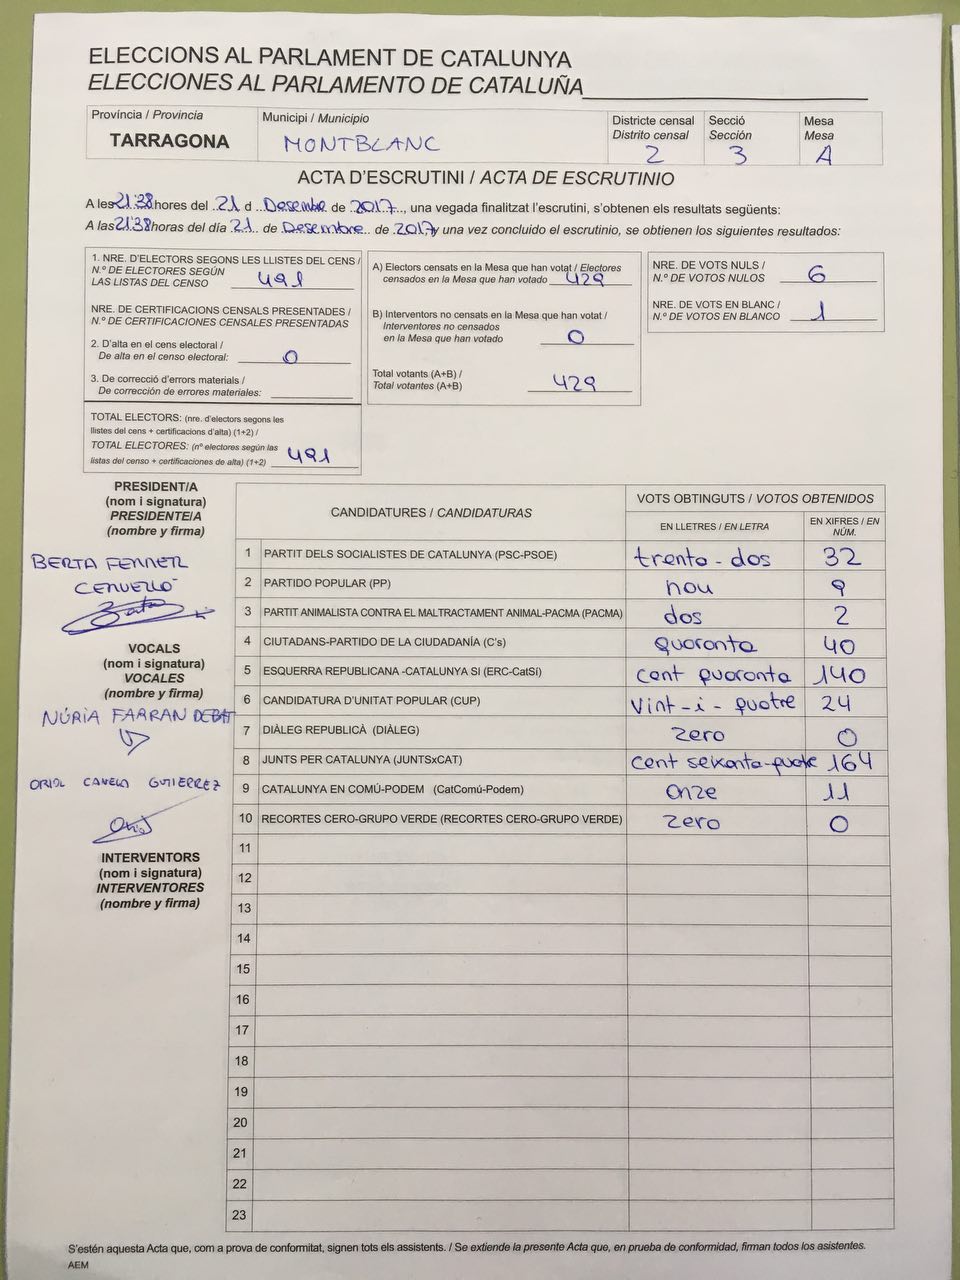 ELECCIONS AL PARLAMENT DE CATALUNYA
ELECCIONES AL PARLAMENTO DE CATALUÑA
Província / Provincia
TARRAGONA
Municipi / Municipio
MONTBLANC
Districte censal
Distrito censal
2
Secció
Sección
3
Mesa
Mesa
A
ACTA D'ESCRUTINI / ACTA DE ESCRUTINIO
A les 21:38 hores del 21 d Desembre de 2017, una vegada finalitzat l'escrutini, s'obtenen els resultats següents:
A las 21:38 horas del día 21 de Desembre de 2017 y una vez concluido el escrutinio, se obtienen los siguientes resultados:
1. NRE. D'ELECTORS SEGONS LES LLISTES DEL CENS /
N.º DE ELECTORES SEGÚN
LAS LISTAS DEL CENSO 491
NRE. DE CERTIFICACIONS CENSALS PRESENTADES /
N.º DE CERTIFICACIONES CENSALES PRESENTADAS
2. D'alta en el cens electoral /
De alta en el censo electoral: 0
3. De correcció d'errors materials /
De corrección de errores materiales:
TOTAL ELECTORS: (nre. d'electors segons les
llistes del cens + certificacions d'alta) (1+2) /
TOTAL ELECTORES: (nº electores según las
listas del censo + certificaciones de alta) (1+2) 491
A) Electors censats en la Mesa que han votat / Electores
censados en la Mesa que han votado 429
B) Interventors no censats en la Mesa que han votat /
Interventores no censados
en la Mesa que han votado 0
Total votants (A+B) /
Total votantes (A+B) 429
NRE. DE VOTS NULS /
N.º DE VOTOS NULOS 6
NRE. DE VOTS EN BLANC /
N.º DE VOTOS EN BLANCO 1
PRESIDENT/A
(nom i signatura)
PRESIDENTE/A
(nombre y firma)
BERTA FERRER
CERVELLÓ
VOCALS
(nom i signatura)
VOCALES
(nombre y firma)
NÚRIA FARRAN DEBAT
ORIOL CANELA GUTIERREZ
INTERVENTORS
(nom i signatura)
INTERVENTORES
(nombre y firma)
CANDIDATURES / CANDIDATURAS
VOTS OBTINGUTS / VOTOS OBTENIDOS
EN LLETRES / EN LETRA
EN XIFRES / EN
NÚM.
1 PARTIT DELS SOCIALISTES DE CATALUNYA (PSC-PSOE) trenta-dos 32
2 PARTIDO POPULAR (PP) nou 9
3 PARTIT ANIMALISTA CONTRA EL MALTRACTAMENT ANIMAL-PACMA (PACMA) dos 2
4 CIUTADANS-PARTIDO DE LA CIUDADANÍA (C's) quaranta 40
5 ESQUERRA REPUBLICANA -CATALUNYA SI (ERC-CatSí) cent quaranta 140
6 CANDIDATURA D'UNITAT POPULAR (CUP) vint-i-quatre 24
7 DIÀLEG REPUBLICÀ (DIÀLEG) zero 0
8 JUNTS PER CATALUNYA (JUNTSxCAT) cent seixanta-quatre 164
9 CATALUNYA EN COMÚ-PODEM (CatComú-Podem) onze 11
10 RECORTES CERO-GRUPO VERDE (RECORTES CERO-GRUPO VERDE) zero 0
11
12
13
14
15
16
17
18
19
20
21
22
23
S'estén aquesta Acta que, com a prova de conformitat, signen tots els assistents. / Se extiende la presente Acta que, en prueba de conformidad, firman todos los asistentes.
AEM